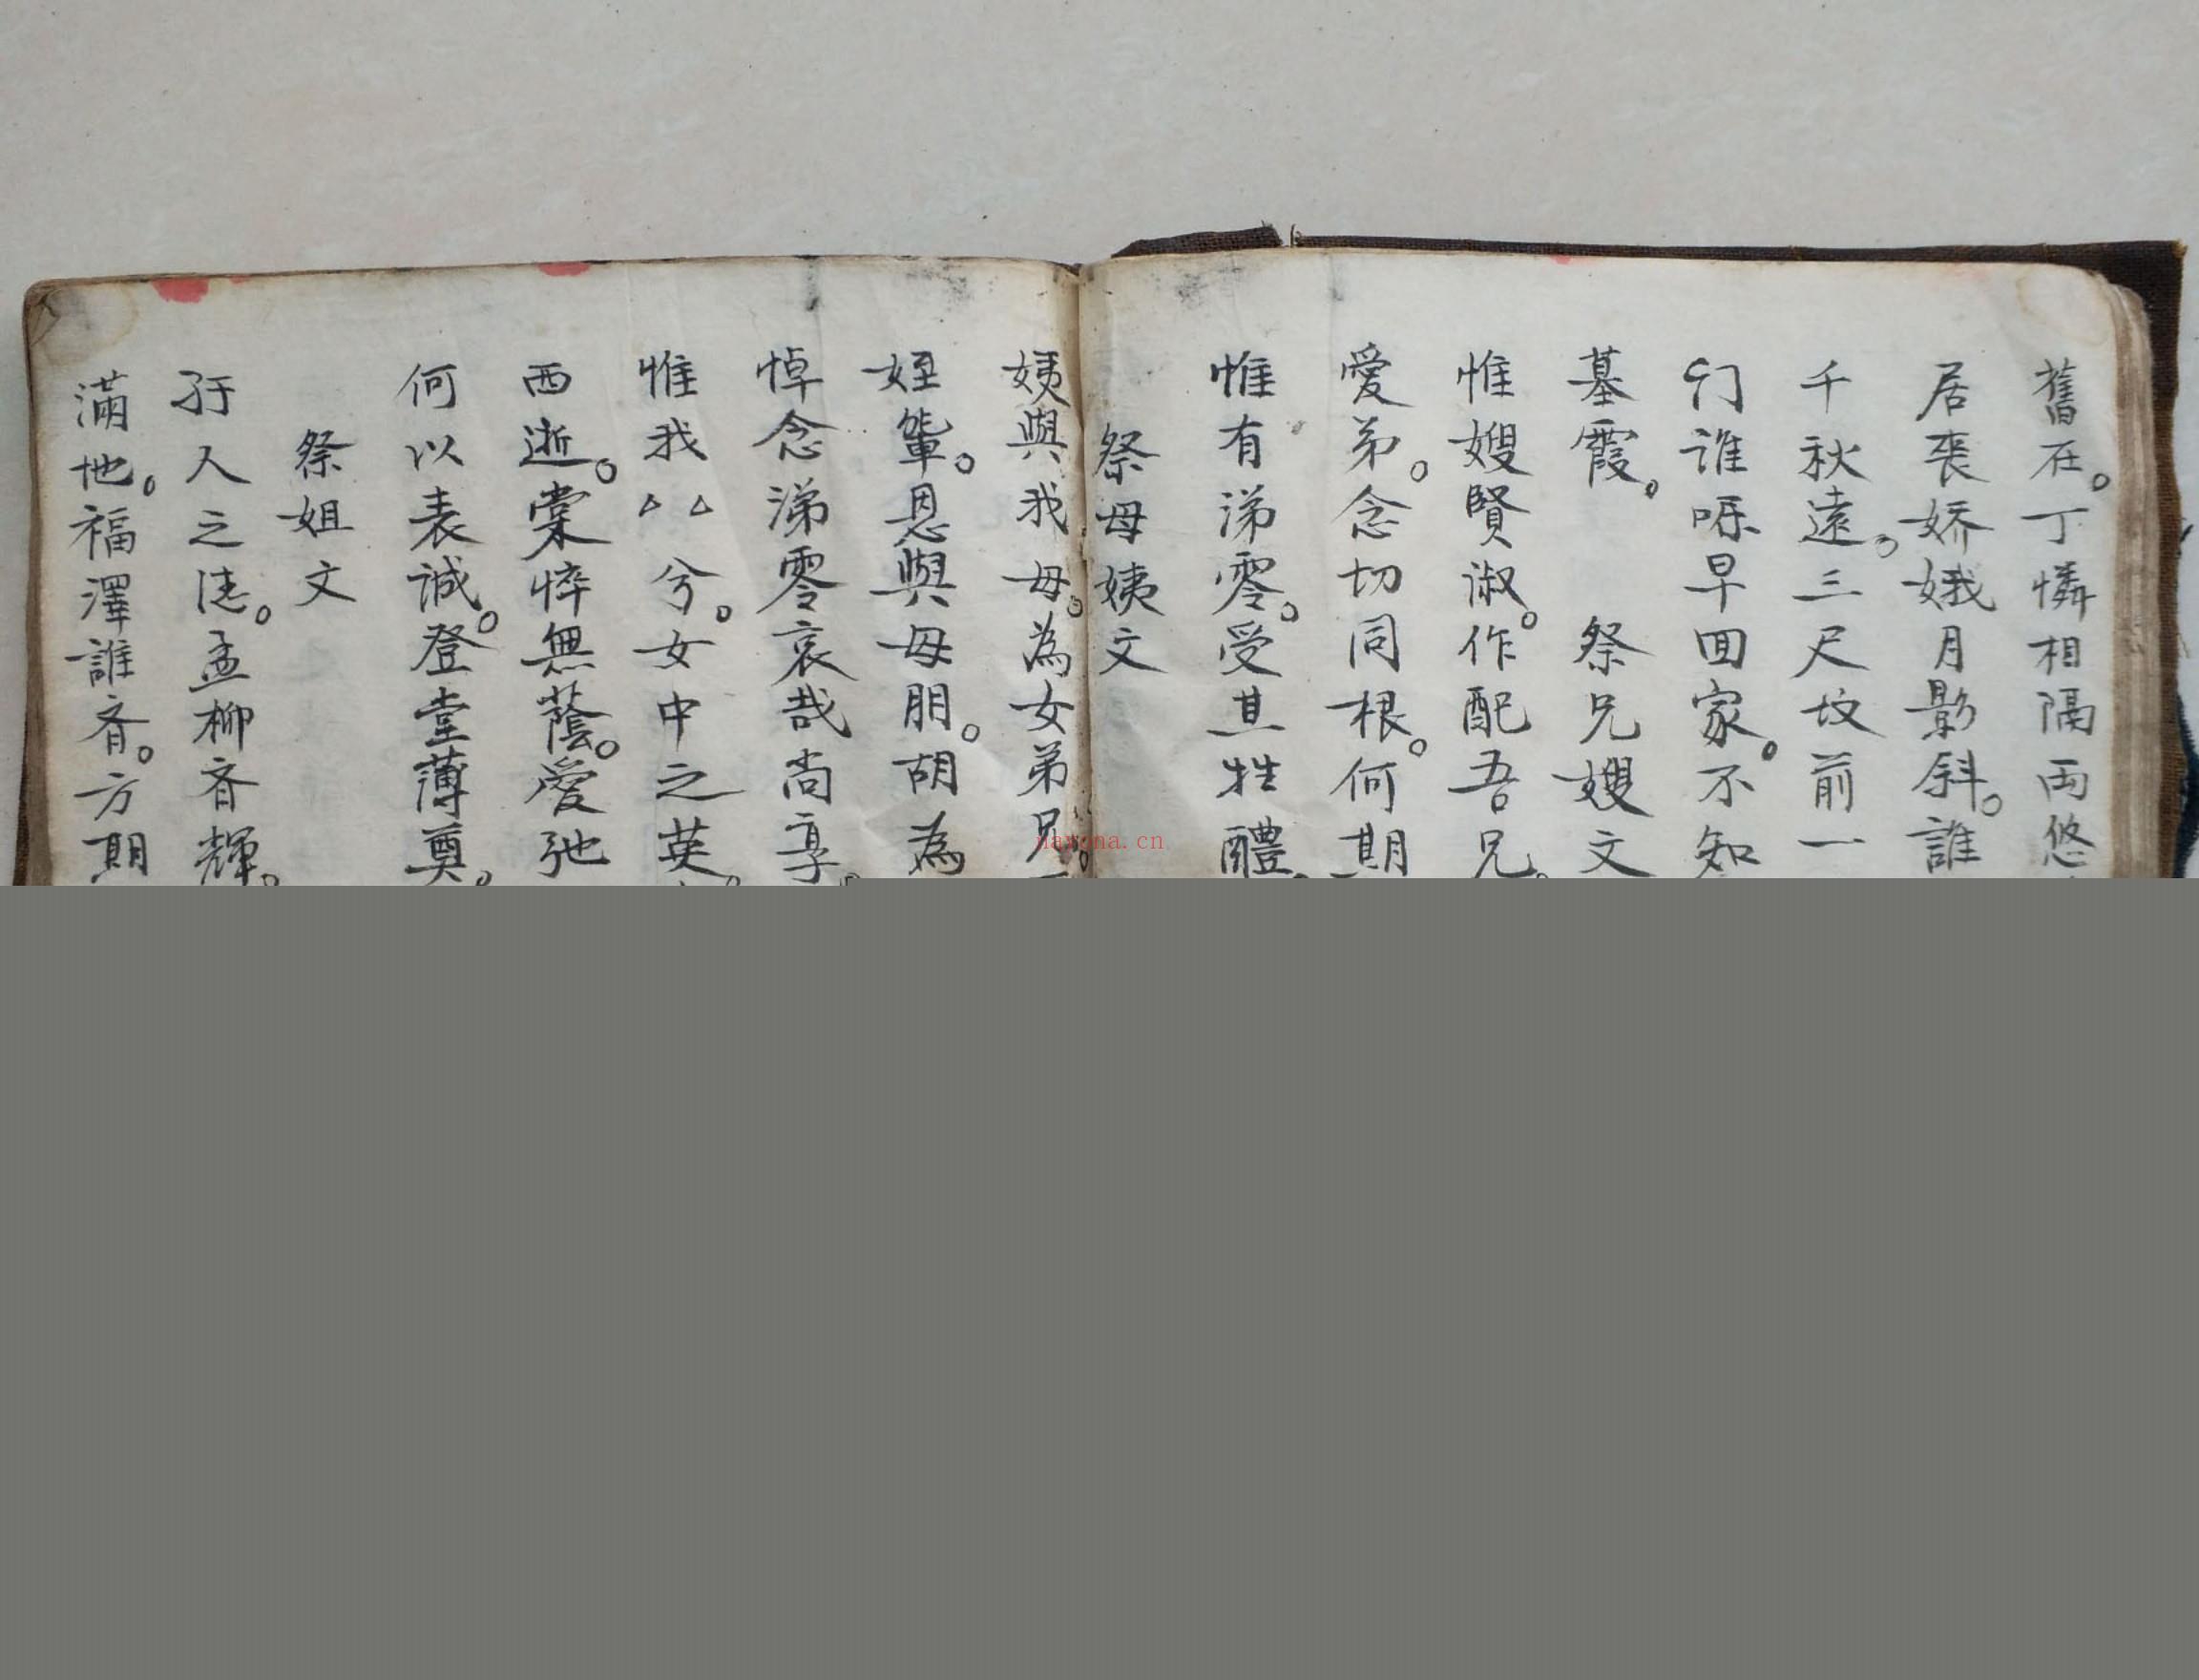 舊在。丁憐相隔両悠
居喪娇娥月影斜。誰
千秋遠。三尺坟前一
们誰㖿早回家。不知
墓霞。 祭兄嫂文
惟嫂賢淑。作配吾兄。
愛弟。念切同根。何期
惟有涕零。受其牲醴。
祭母姨文
姨與我母。為女弟兄。
姪輩。恩與母朋。胡為
悼念涕零哀哉尚享。
惟我△△兮。女中之英。
西逝。棠悴無蔭。愛弛
何以表誠。登堂薄奠。
祭姐文
人之德。孟柳斉輝。
滿地。福澤誰斉。方期
nayona.cn